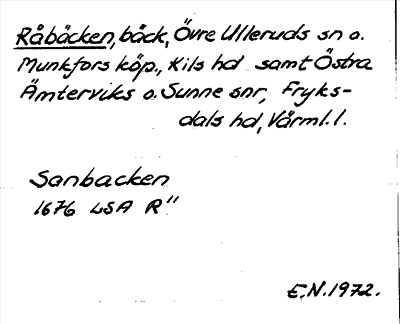 Råbäcken, bäck, Övre Ulleruds sn o.
Munkfors köp., Kils hd samt Östra
Ämterviks o. Sunne snr, Fryks-
dals hd, Värml. l.
Sanbacken
1676 LSA R"
E.N. 1972.